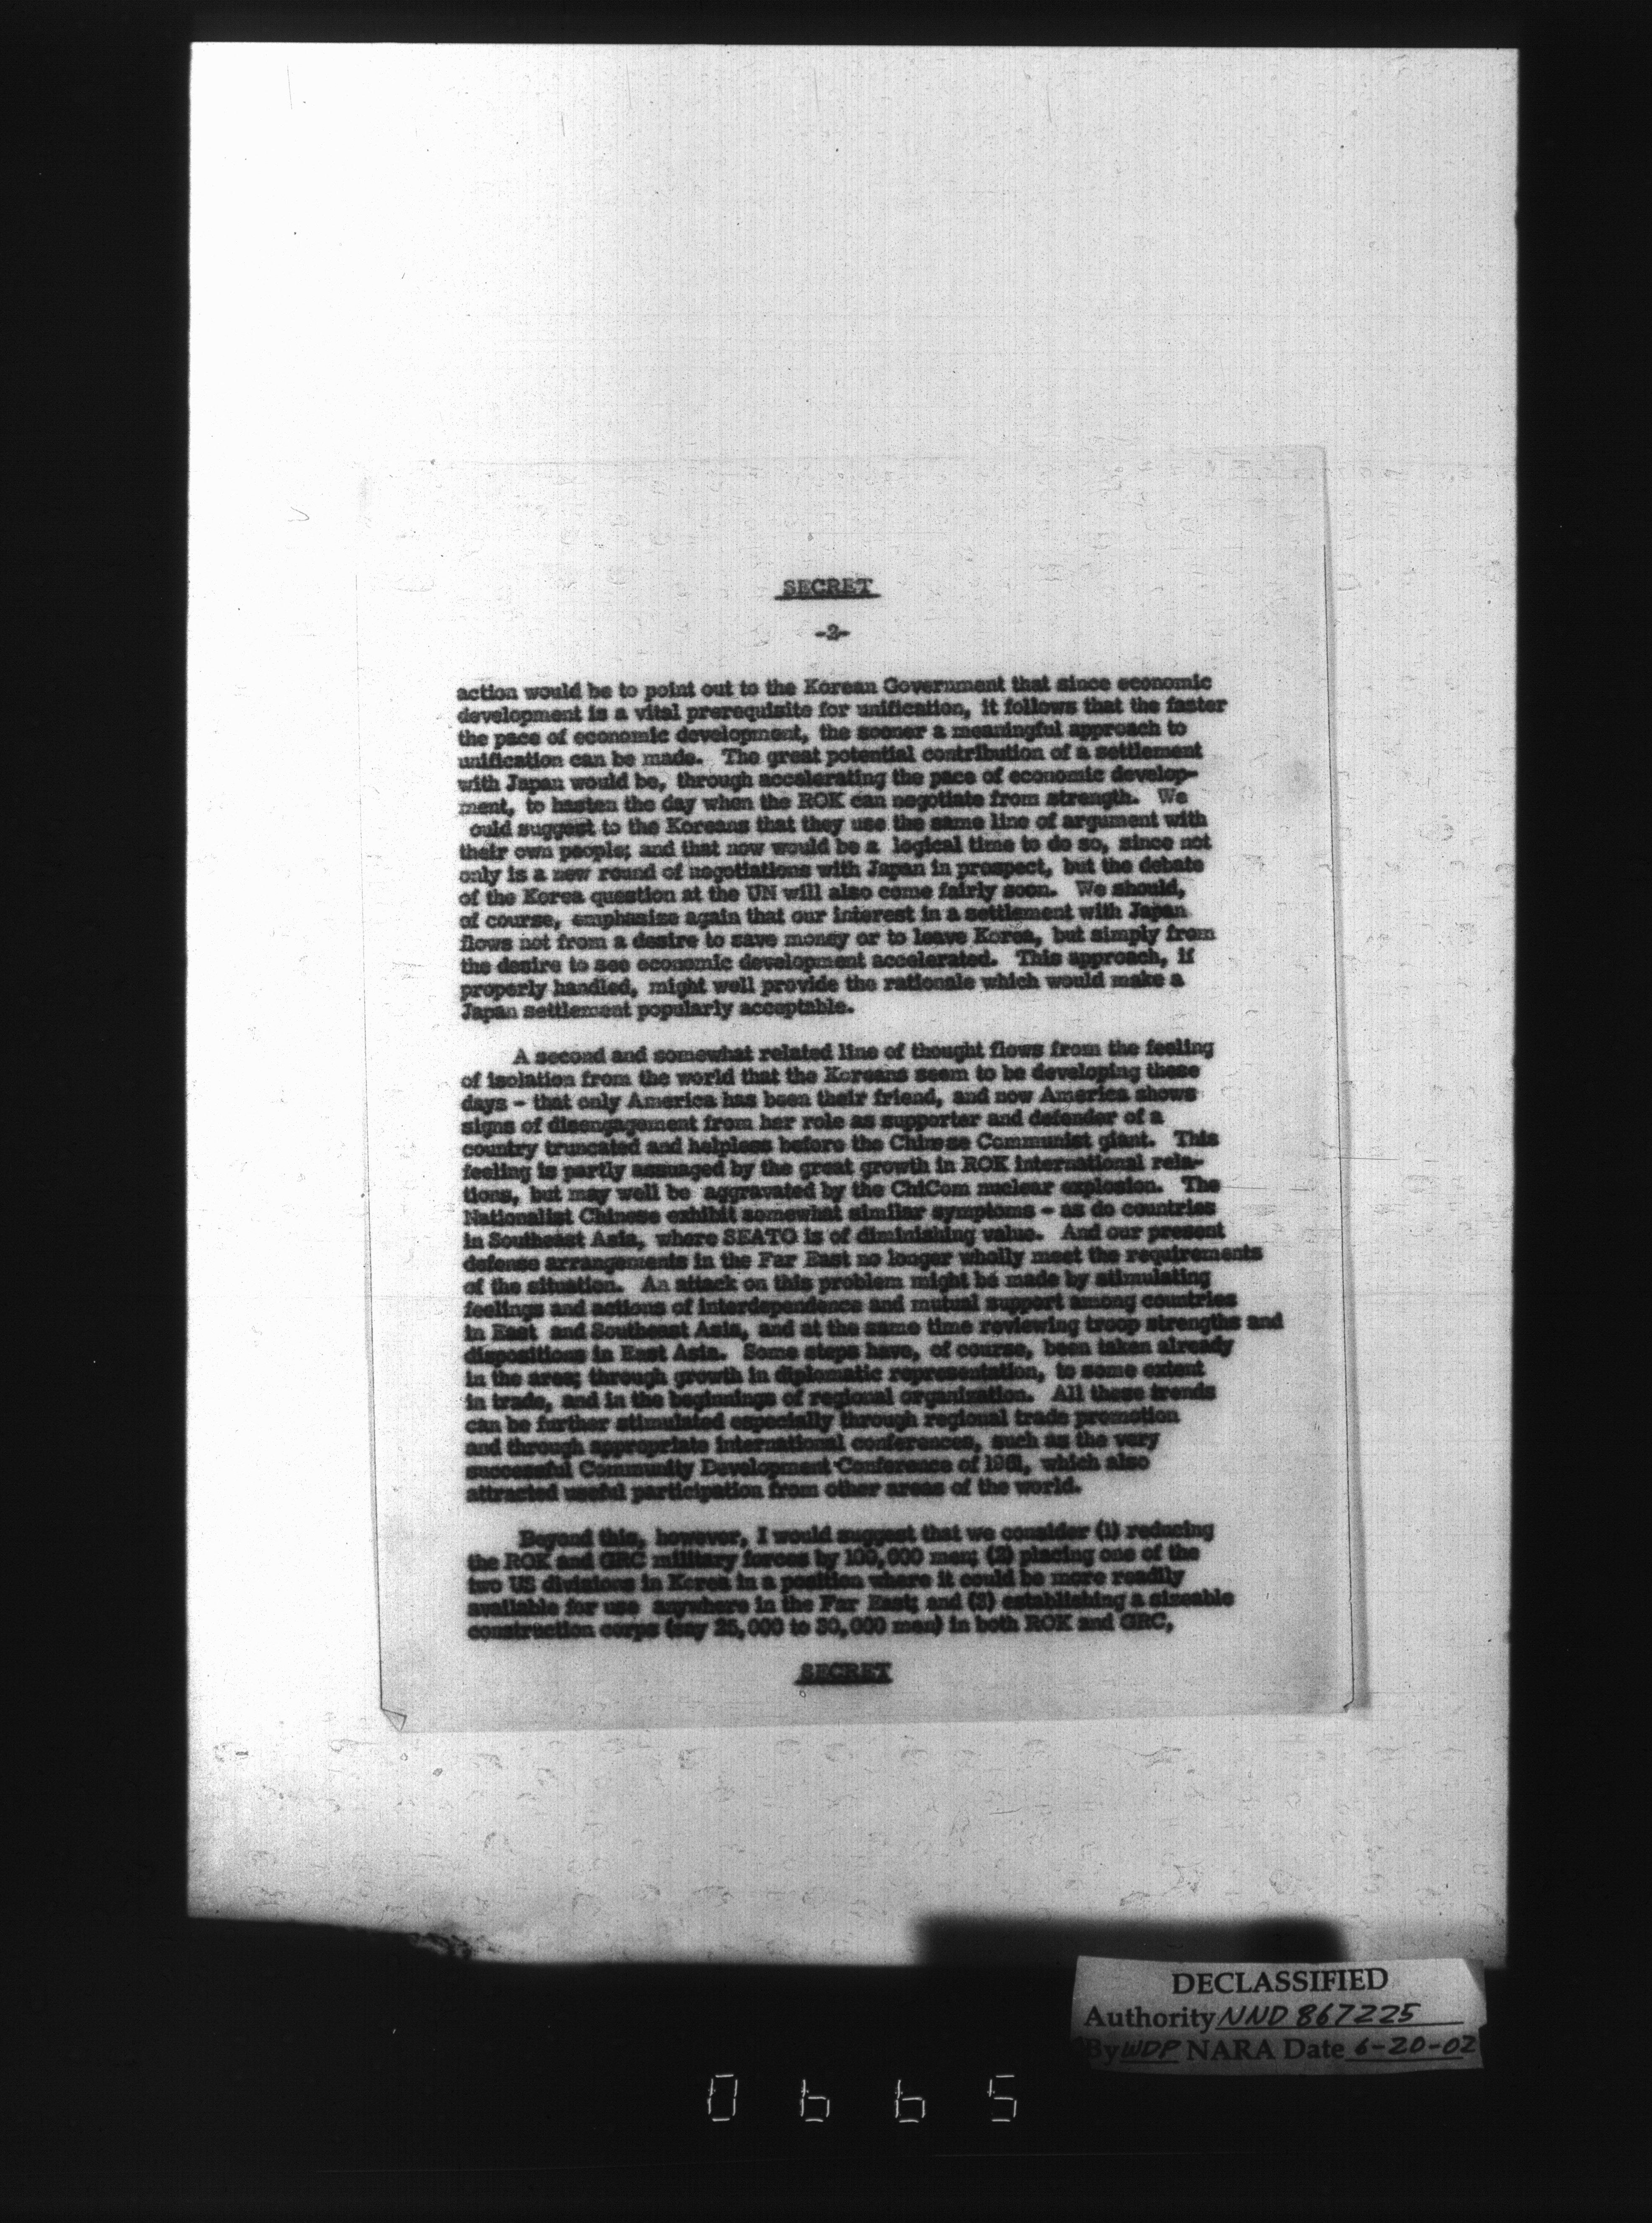 SECRET
-2-
action would be to point out to the Korean Government that since economic
development is a vital prerequisite for unification, it follows that the faster
the pace of economic development, the sooner a meaningful approach to
unification can be made. The great potential contribution of a settlement
with Japan would be, through accelerating the pace of economic develop-
ment, to hasten the day when the ROK can negotiate from strength. We
ould suggest to the Koreans that they use the same line of argument with
their own people; and that now would be a logical time to do so, since not
only is a new round of negotiations with Japan in prospect, but the debate
of the Korea question at the UN will also come fairly soon. We should,
of course, emphasize again that our interest in a settlement with Japan
flows not from a desire to save money or to leave Korea, but simply from
the desire to see economic development accelerated. This approach, if
properly handled, might well provide the rationale which would make a
Japan settlement popularly acceptable.
A second and somewhat related line of thought flows from the feeling
of isolation from the world that the Koreans seem to be developing these
days - that only America has been their friend, and now America shows
signs of disengagement from her role as supporter and defender of a
country truncated and helpless before the Chinese Communist giant. This
feeling is partly assuaged by the great growth in ROK international rela-
tions, but may well be aggravated by the ChiCom nuclear explosion. The
Nationalist Chinese exhibit somewhat similar symptoms - as do countries
in Southeast Asia, where SEATO is of diminishing value. And our present
defense arrangements in the Far East no longer wholly meet the requirements
of the situation. An attack on this problem might be made by stimulating
feelings and actions of interdependence and mutual support among countries
in East and Southeast Asia, and at the same time reviewing troop strengths and
dispositions in East Asia. Some steps have, of course, been taken already
in the area; through growth in diplomatic representation, to some extent
in trade, and in the beginnings of regional organization. All these trends
can be further stimulated especially through regional trade promotion
and through appropriate international conferences, such as the very
successful Community Development Conference of 1961, which also
attracted useful participation from other areas of the world.
Beyond this, however, I would suggest that we consider (1) reducing
the ROK and GRC military forces by 100,000 men; (2) placing one of the
two US divisions in Korea in a position where it could be more readily
available for use anywhere in the Far East; and (3) establishing a sizeable
construction corps (say 25,000 to 30,000 men) in both ROK and GRC,
SECRET
DECLASSIFIED
Authority NND 867225
By WDP NARA Date 6-20-02
0665